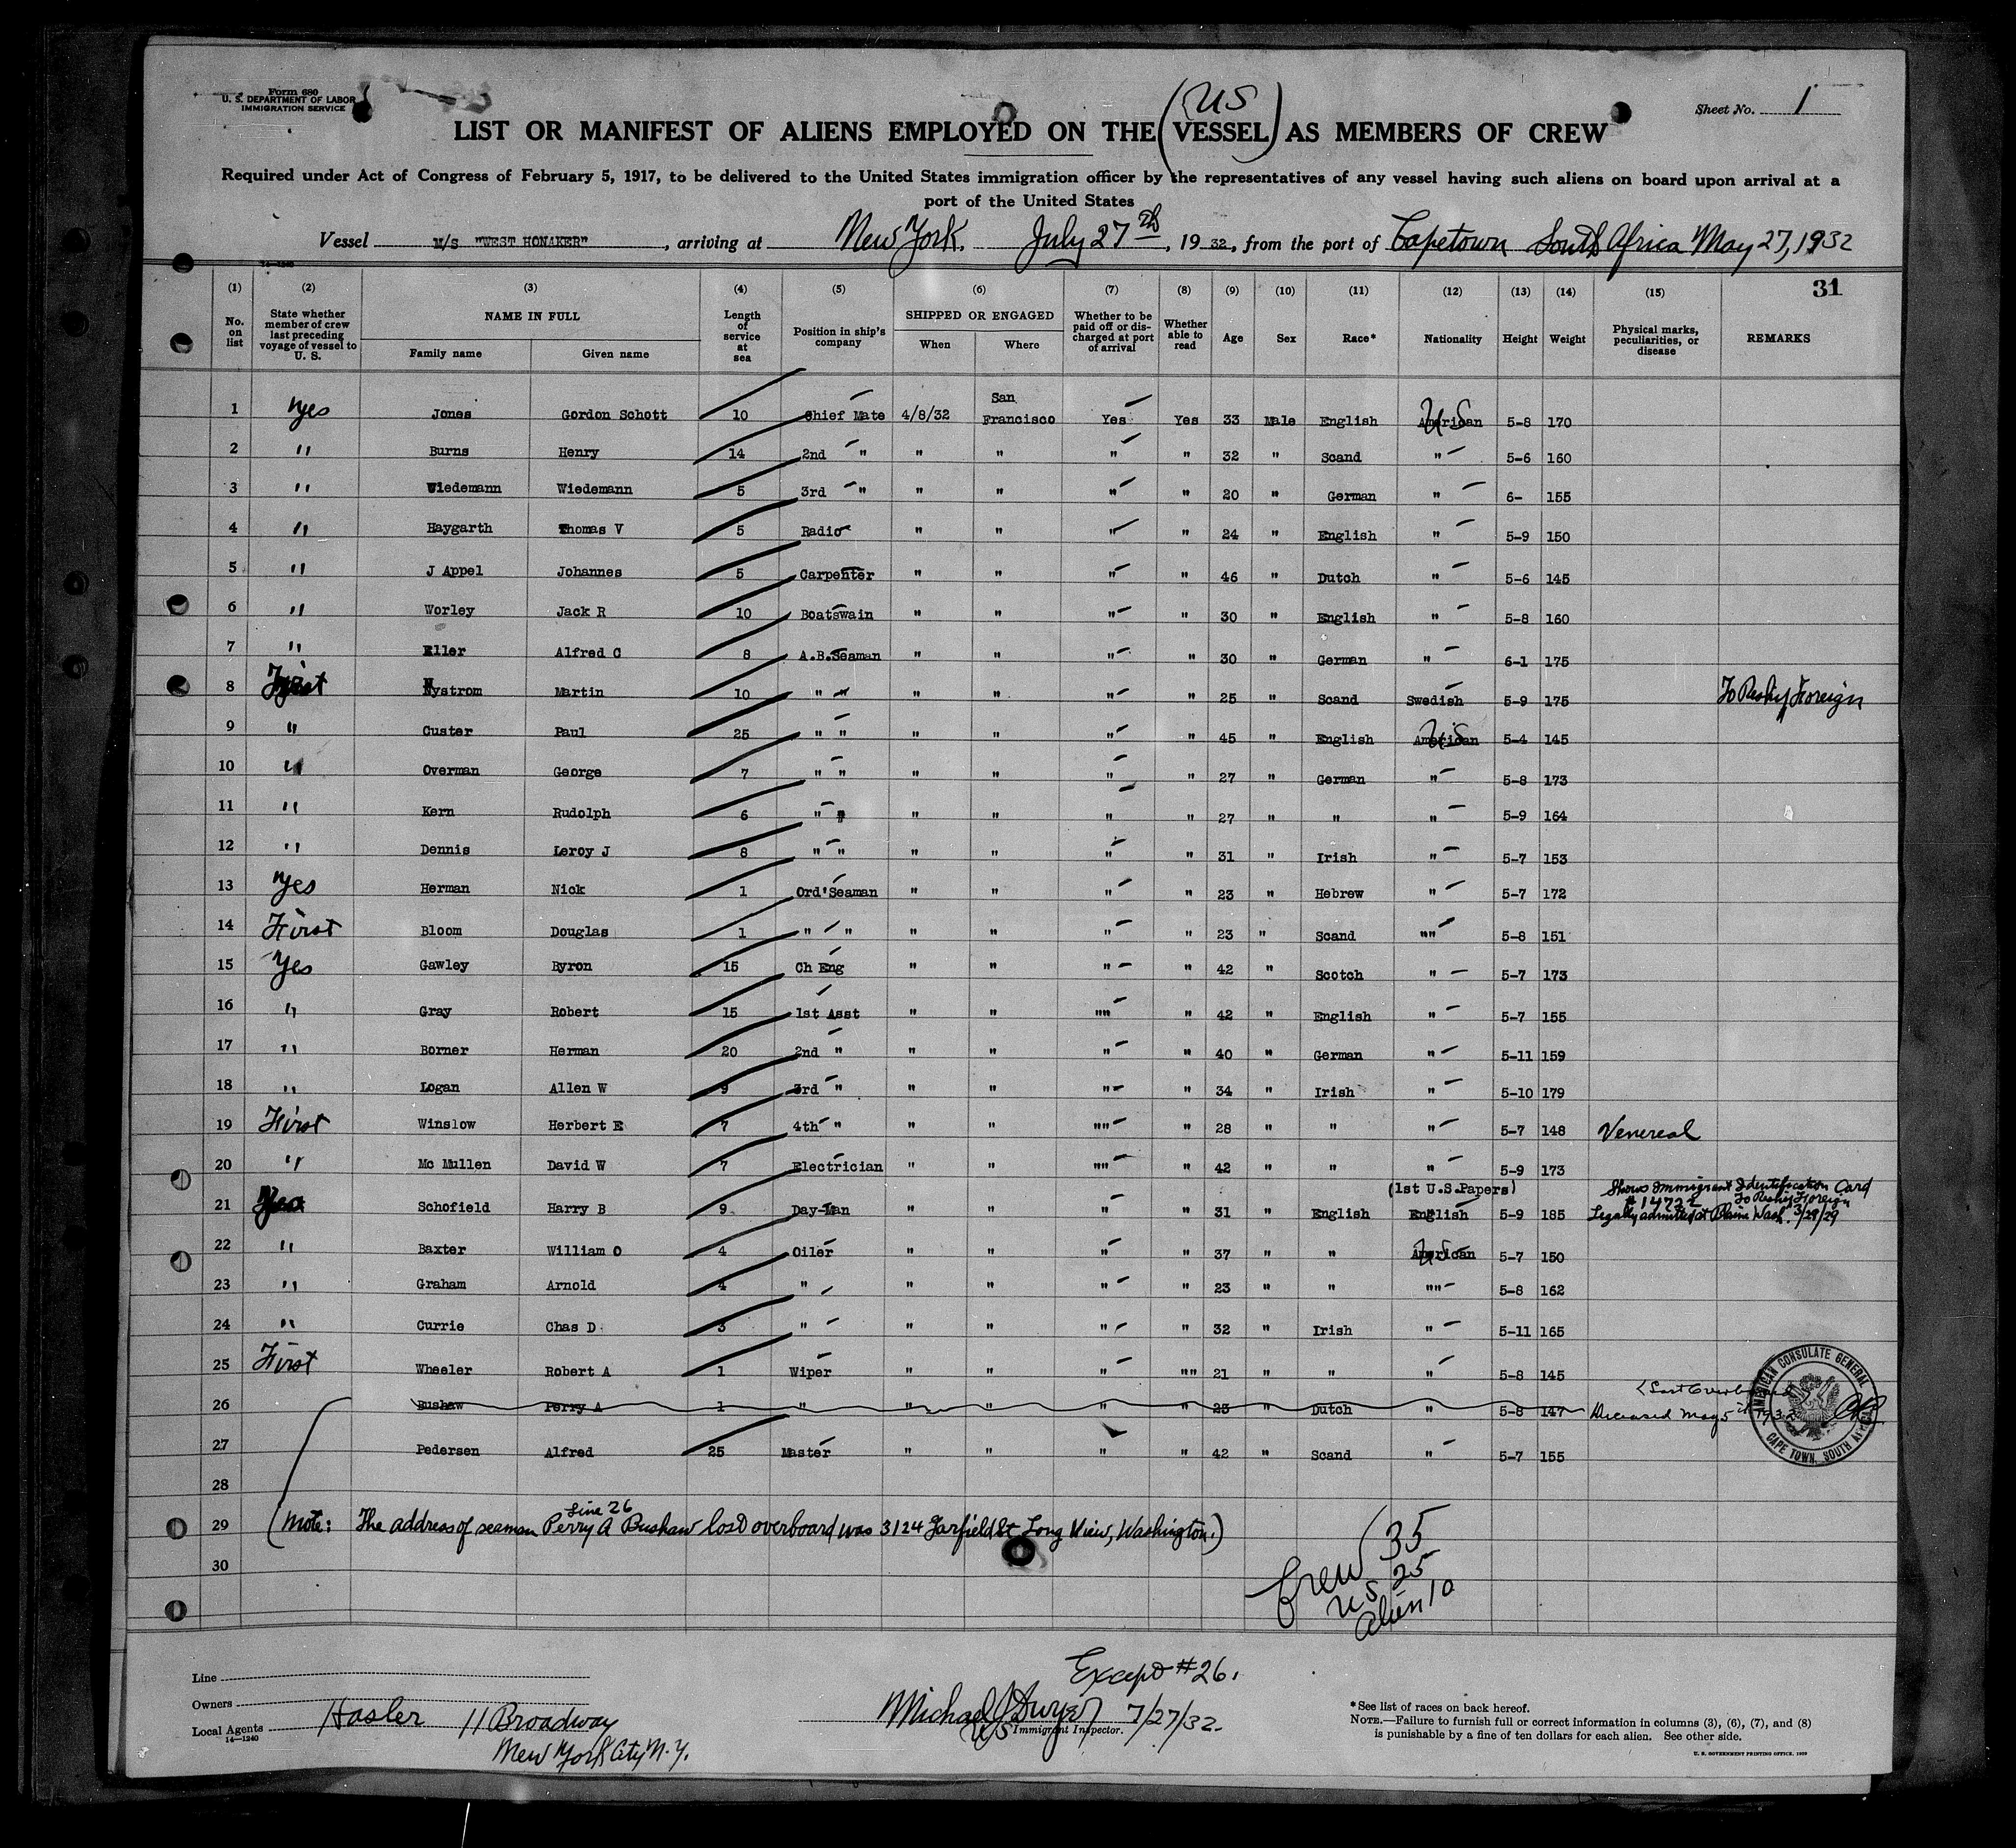 Form 680
U. S. DEPARTMENT OF LABOR
IMMIGRATION SERVICE
Sheet No. 1
(US)
LIST OR MANIFEST OF ALIENS EMPLOYED ON THE (VESSEL) AS MEMBERS OF CREW
Required under Act of Congress of February 5, 1917, to be delivered to the United States immigration officer by the representatives of any vessel having such aliens on board upon arrival at a
port of the United States
Vessel M/S "WEST HONAKER", arriving at New York. July 27th, 1932, from the port of Capetown South Africa May 27, 1932
31
(1) (2) (3) (4) (5) (6) (7) (8) (9) (10) (11) (12) (13) (14) (15)
No. on list | State whether member of crew last preceding voyage of vessel to U. S. | NAME IN FULL Family name Given name | Length of service at sea | Position in ship's company | SHIPPED OR ENGAGED When Where | Whether to be paid off or discharged at port of arrival | Whether able to read | Age | Sex | Race* | Nationality | Height | Weight | Physical marks, peculiarities, or disease | REMARKS
1 Yes Jones Gordon Schott 10 Chief Mate 4/8/32 San Francisco Yes Yes 33 Male English American US 5-8 170
2 " Burns Henry 14 2nd " " " " " 32 " Scand " 5-6 160
3 " Wiedemann Wiedemann 5 3rd " " " " " 20 " German " 6- 155
4 " Haygarth Thomas V 5 Radio " " " " 24 " English " 5-9 150
5 " J Appel Johannes 5 Carpenter " " " " 46 " Dutch " 5-6 145
6 " Worley Jack R 10 Boatswain " " " " 30 " English " 5-8 160
7 " Eller Alfred C 8 A.B.Seaman " " " " 30 " German " 6-1 175
8 First Nystrom Martin 10 " " " " " " 25 " Scand Swedish 5-9 175 To Reship Foreign
9 " Custer Paul 25 " " " " " " 45 " English American US 5-4 145
10 " Overman George 7 " " " " " " 27 " German " 5-8 173
11 " Kern Rudolph 6 " " " " " " 27 " " " 5-9 164
12 " Dennis Leroy J 8 " " " " " " 31 " Irish " 5-7 153
13 Yes Herman Nick 1 Ord'Seaman " " " " 23 " Hebrew " 5-7 172
14 First Bloom Douglas 1 " " " " " " 23 " Scand "" 5-8 151
15 Yes Gawley Byron 15 Ch Eng " " " " 42 " Scotch " 5-7 173
16 " Gray Robert 15 1st Asst " " "" " 42 " English " 5-7 155
17 " Borner Herman 20 2nd " " " " " 40 " German " 5-11 159
18 " Logan Allen W 9 3rd " " " " " 34 " Irish " 5-10 179
19 First Winslow Herbert E 7 4th " " " "" " 28 " " " 5-7 148 Venereal
20 " Mc Mullen David W 7 Electrician " " "" " 42 " " " 5-9 173
(1st U.S.Papers) Shows Immigrant Identification Card
#14722 To Reship Foreign
21 Yes Schofield Harry B 9 Day-Man " " " " 31 " English English 5-9 185 Legally admitted at Blaine Wash. 3/29/29
22 " Baxter William O 4 Oiler " " " " 37 " " American US 5-7 150
23 " Graham Arnold 4 " " " " " 23 " " "" 5-8 162
24 " Currie Chas D 3 " " " " " 32 " Irish " 5-11 165
25 First Wheeler Robert A 1 Wiper " " " "" 21 " " " 5-8 145
26 Bushaw Perry A 1 " " " " " 23 " Dutch " 5-8 147 (Lost Overboard Deceased May 5th 1932
AMERICAN CONSULATE GENERAL CAPE TOWN, SOUTH AFRICA
27 Pedersen Alfred 25 Master " " " " 42 " Scand " 5-7 155
28
Line 26
29 (Note: The address of seaman Perry A Bushaw lost overboard was 3124 Garfield St Long View, Washington.)
30
Crew 35
US 25
Alien 10
Except #26.
Line
Owners
Local Agents Hasler 11 Broadway
New York City N.Y.
14—1240
Michael J Dwyer 7/27/32.
US Immigrant Inspector.
*See list of races on back hereof.
NOTE.—Failure to furnish full or correct information in columns (3), (6), (7), and (8)
is punishable by a fine of ten dollars for each alien. See other side.
U. S. GOVERNMENT PRINTING OFFICE, 1929